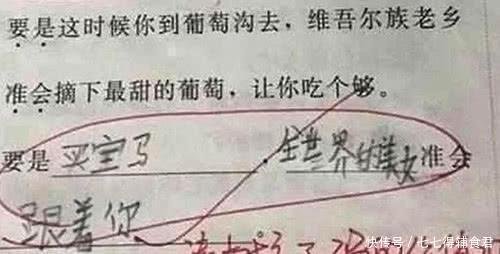 要是这时候你到葡萄沟去，维吾尔族老乡
准会摘下最甜的葡萄，让你吃个够。
要是 买宝马 ，全世界的美女准会
跟着你
快传号／七七得辅食君